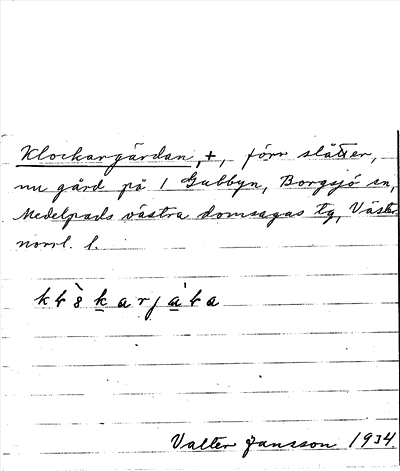 Klockargärdan, +, förr slåtter,
nu gård på 1 Gubbyn, Borgsjö sn,
Medelpads västra domsagas tg, Väster-
norrl. l.
Valter Jansson 1934.